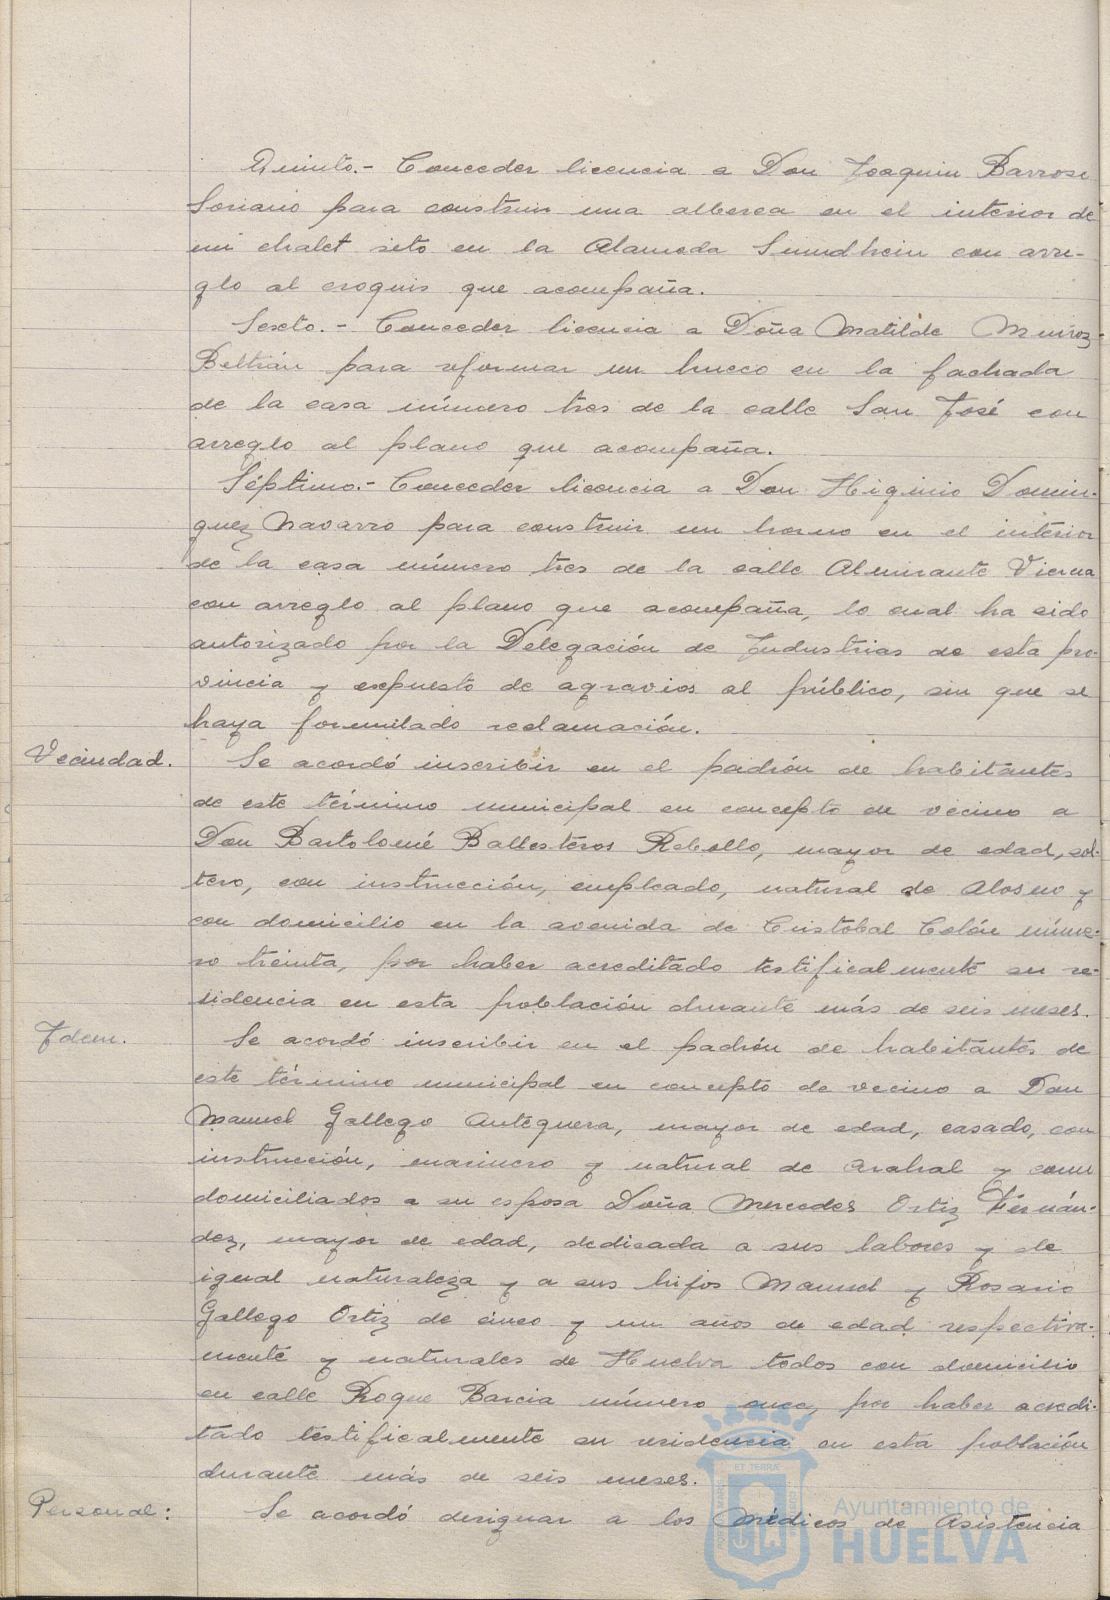 Quinto.- Conceder licencia a Don Joaquin Barroso
Soriano para construir una alberca en el interior de
un chalet sito en la Alameda Sundhein con arre-
glo al croquis que acompaña.
Sexto.- Conceder licencia a Doña Matilde Muñoz
Beltrán para reformar un hueco en la fachada
de la casa número tres de la calle San José con
arreglo al plano que acompaña.
Séptimo.- Conceder licencia a Don Higinio Domin-
guez Navarro para construir un horno en el interior
de la casa número tres de la calle Almirante Vierna
con arreglo al plano que acompaña, lo cual ha sido
autorizado por la Delegación de Industrias de esta pro-
vincia y expuesto de agravios al público, sin que se
haya formulado reclamación.
Vecindad. Se acordó inscribir en el padrón de habitantes
de este término municipal en concepto de vecino a
Don Bartolomé Ballesteros Rebollo, mayor de edad, sol-
tero, con instrucción, empleado, natural de Alosno y
con domicilio en la avenida de Cristobal Colón núme-
ro treinta, por haber acreditado testificalmente su re-
sidencia en esta población durante más de seis meses.
Idem. Se acordó inscribir en el padrón de habitantes de
este término municipal en concepto de vecino a Don
Manuel Gallego Antequera, mayor de edad, casado, con
instrucción, marinero y natural de Arahal y como
domiciliados a su esposa Doña Mercedes Ortiz Fernán-
dez, mayor de edad, dedicada a sus labores y de
igual naturaleza y a sus hijos Manuel y Rosario
Gallego Ortiz de cinco y un años de edad respectiva-
mente y naturales de Huelva todos con domicilio
en calle Roque Barcia número once, por haber acredi-
tado testificalmente su residencia en esta población
durante más de seis meses.
Personal: Se acordó designar a los Médicos de Asistencia
Ayuntamiento de
HUELVA